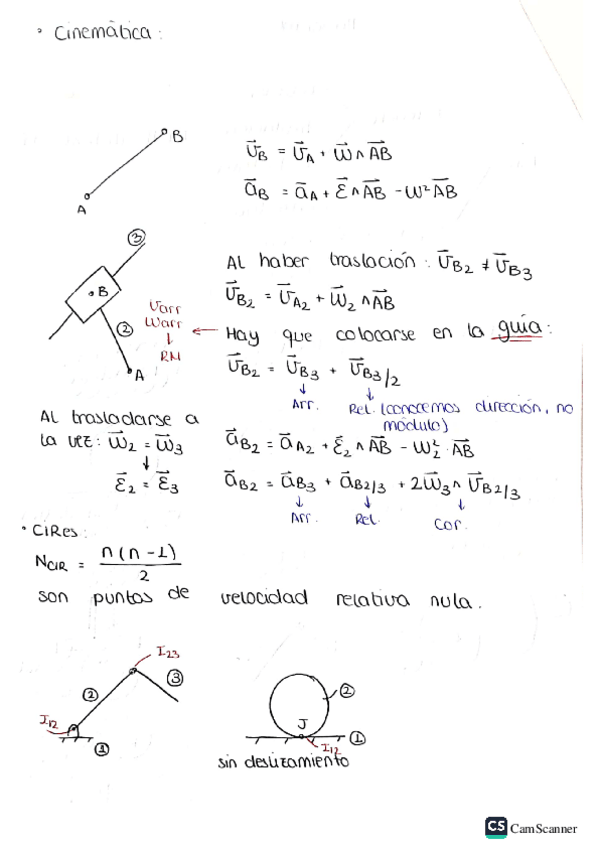 • Cinemática:
B
A
U⃗B = U⃗A + W⃗ ∧ AB⃗
a⃗B = a⃗A + ε⃗ ∧ AB⃗ - W² AB⃗
3
•B
2
A
Uarr
Warr
↓
RM
Al haber traslación: U⃗B2 ≠ U⃗B3
U⃗B2 = U⃗A2 + W⃗2 ∧ AB⃗
← Hay que colocarse en la guía:
U⃗B2 = U⃗B3 + U⃗B3/2
↓ ↓
Arr. Rel. (conocemos dirección, no
módulo)
Al trasladarse a
la vez: W⃗2 = W⃗3
↓
ε⃗2 = ε⃗3
a⃗B2 = a⃗A2 + ε⃗2 ∧ AB⃗ - W2² · AB⃗
a⃗B2 = a⃗B3 + a⃗B2/3 + 2W⃗3 ∧ U⃗B2/3
↓ ↓ ↓
Arr. Rel. Cor.
• CIRes:
NCIR = n(n-1)/2
son puntos de velocidad relativa nula.
I23
3
2
I12
1
2
J
1
I12
sin deslizamiento
CS CamScanner